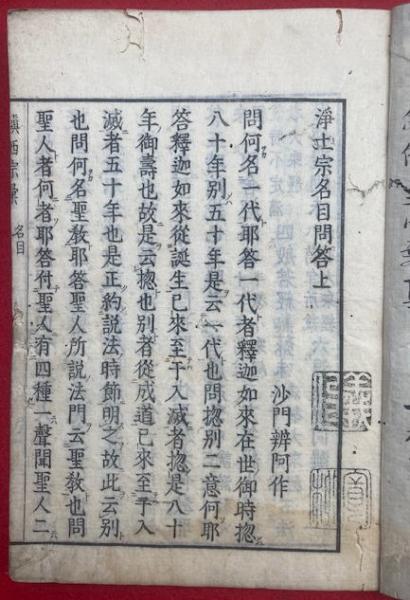 淨土宗名目問答上
沙門辨阿作
問何名一代耶答一代者釋迦如來在世御時揔
八十年别五十年是云一代也問揔别二意何耶
答釋迦如來從誕生已來至于入滅者揔是八十
年御壽也故是云揔也别者從成道已來至于入
滅者五十年也是正約説法時節明之故此云别
也問何名聖敎耶答聖人所説法門云聖敎也問
聖人者何者耶答付聖人有四種一聲聞聖人二
鎭西宗 名目